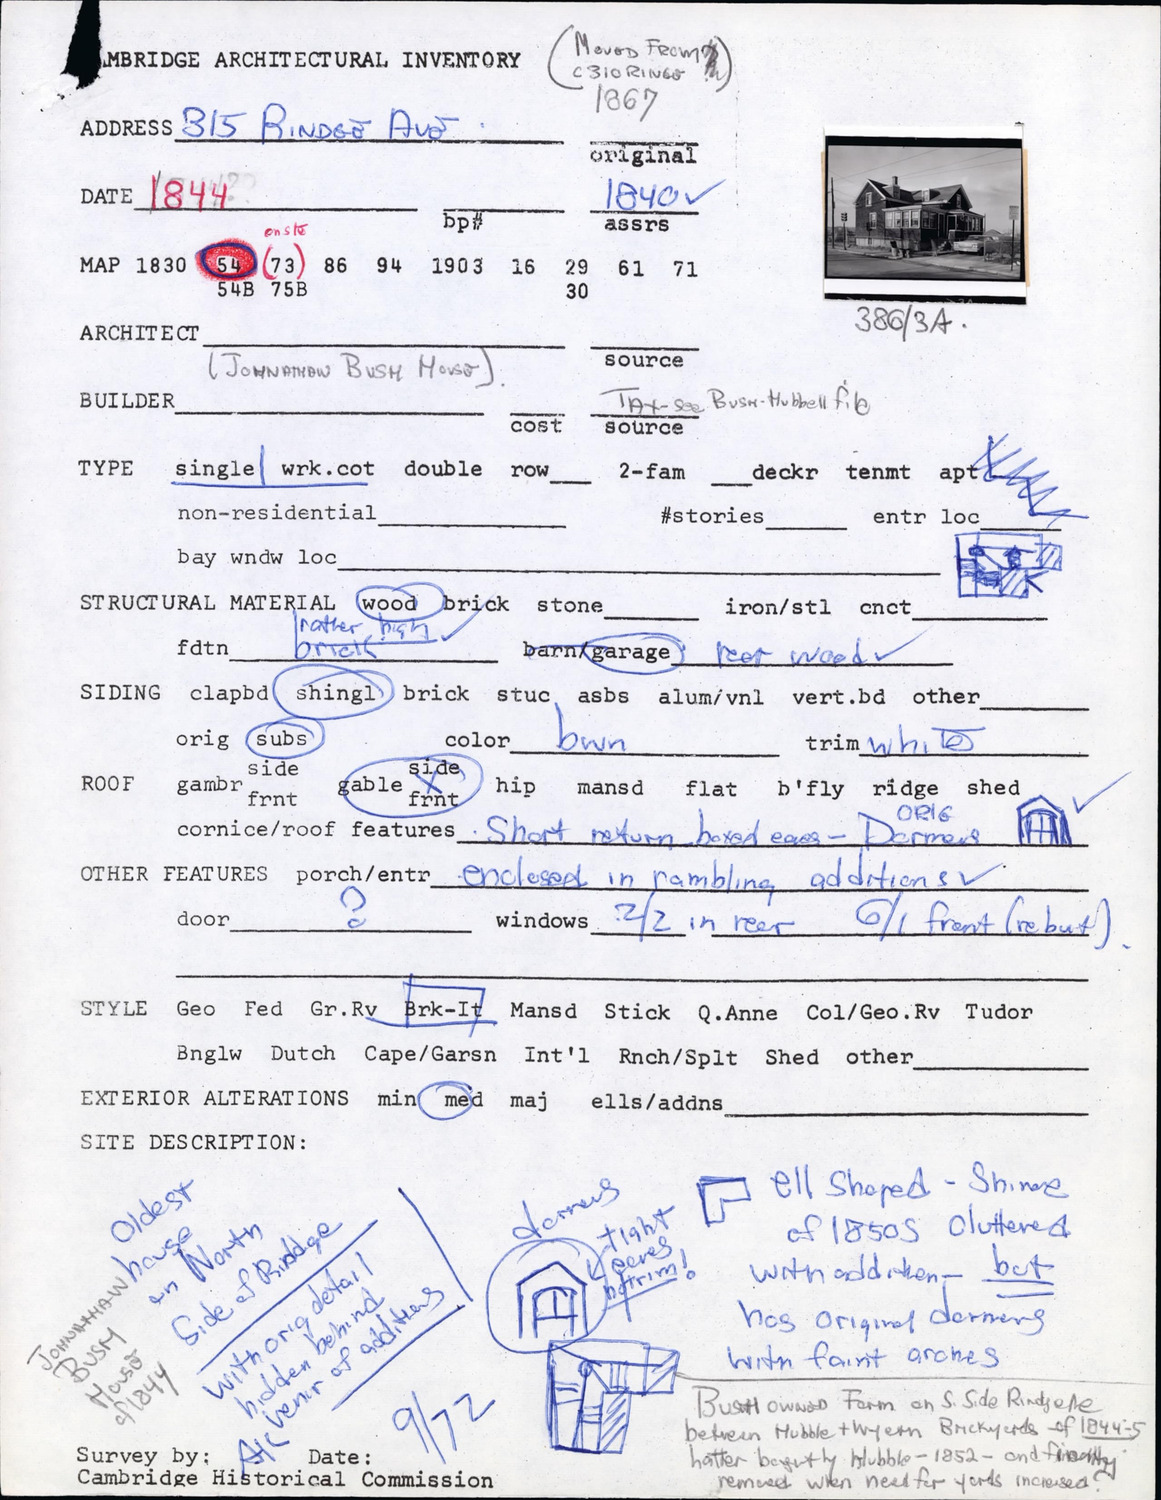 AMBRIDGE ARCHITECTURAL INVENTORY
(Moved From
c310 Rindge)
1867
ADDRESS 315 Rindge Ave
original
DATE 1844
bp#
1840 ✓
assrs
onsite
MAP 1830 54 (73) 86 94 1903 16 29 61 71
54B 75B 30
386/3A.
ARCHITECT
source
(Johnathan Bush House).
BUILDER
cost
Tax-see Bush-Hubbell file
source
TYPE single wrk.cot double row___ 2-fam ___deckr tenmt apt
non-residential #stories entr loc
bay wndw loc
STRUCTURAL MATERIAL wood brick stone iron/stl cnct
rather high ✓
fdtn brick barn/garage rear wood ✓
SIDING clapbd shingl brick stuc asbs alum/vnl vert.bd other
orig subs color bwn trim white
ROOF gambr side frnt gable side frnt hip mansd flat b'fly ridge shed
ORIG
cornice/roof features Short return boxed eaves - Dormers ✓
OTHER FEATURES porch/entr enclosed in rambling additions ✓
door ? windows 2/2 in rear 6/1 front (rebut).
STYLE Geo Fed Gr.Rv Brk-It Mansd Stick Q.Anne Col/Geo.Rv Tudor
Bnglw Dutch Cape/Garsn Int'l Rnch/Splt Shed other
EXTERIOR ALTERATIONS min med maj ells/addns
SITE DESCRIPTION:
Oldest
house
on North
Side of Rindge
with orig detail
hidden behind
venir of additions
Johnathan
Bush
House
of 1844
dormers
tight
eeves
notrim!
ell Shaped -
of 1850s Cluttered
with addition - but
has original dormers
with faint arches
9/72
Bush owned Farm on S. Side Rindge Ave
between Hubble + Wyeth Brickyards of 1844-5
latter bought by Hubble - 1852 - and
removed when need for yards increased?
Survey by: AKC Date:
Cambridge Historical Commission